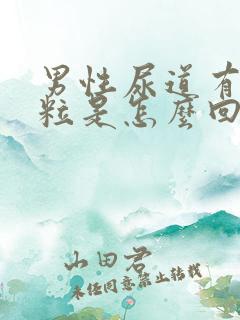 男性尿道有
粒是怎麼回
山田君
未经同意禁止转载